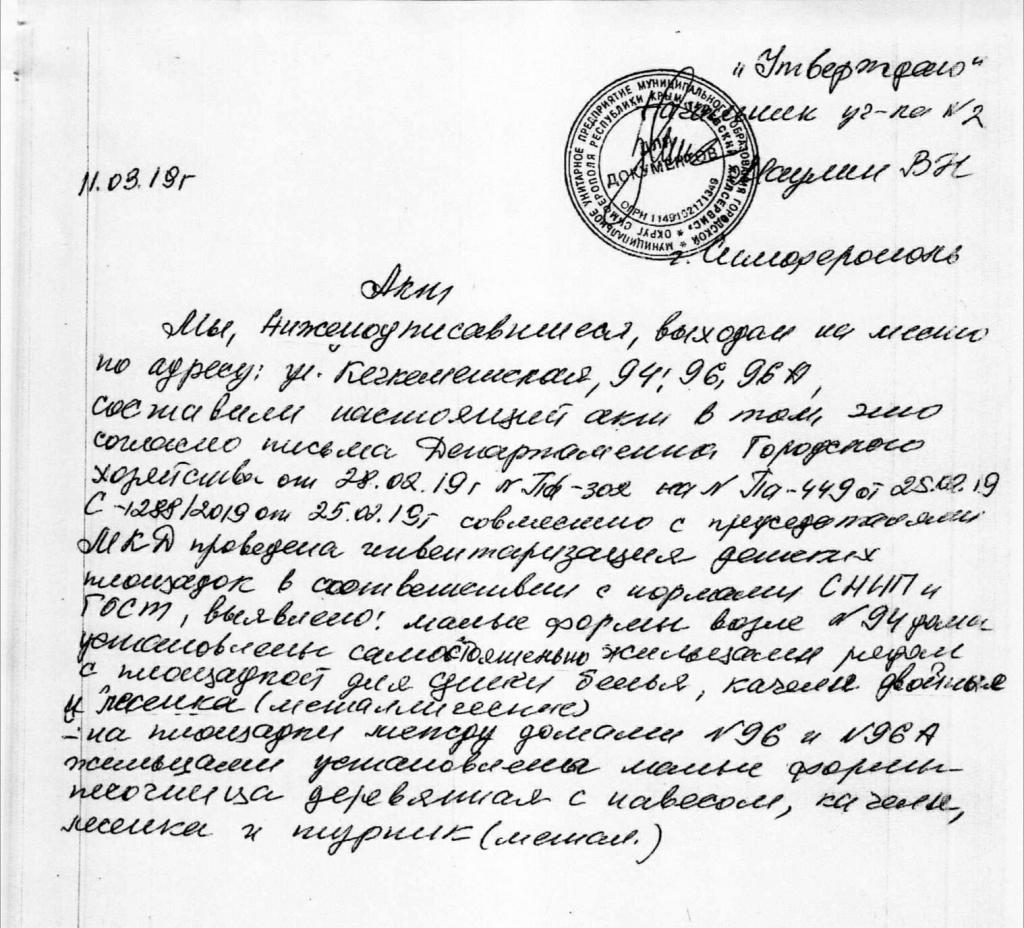 "Утверждаю"
Начальник уч-ка №2
11.03.19г
Маулин ВН
МУНИЦИПАЛЬНОЕ УНИТАРНОЕ ПРЕДПРИЯТИЕ МУНИЦИПАЛЬНОГО ОБРАЗОВАНИЯ ГОРОДСКОЙ
ОКРУГ СИМФЕРОПОЛЯ РЕСПУБЛИКИ КРЫМ
ДЛЯ
ДОКУМЕНТОВ
ОГРН 1149102171349
г. Симферополь
Акт
Мы, нижеподписавшиеся, выходом на место
по адресу: ул. Кечкеметская, 94; 96, 96А,
составили настоящий акт в том, что
согласно письма Департамента Городского
хозяйства от 28.02.19г № Пф-302 на № Па-449 от 25.02.19
С-1288/2019 от 25.02.19г совместно с председателями
МКД проведена инвентаризация детских
площадок в соответствии с нормами СНИП и
ГОСТ, выявлено: малые формы возле №94 дома
установлены самостоятельно жильцами рядом
с площадкой для сушки белья, качели двойные
и лесенка (металлические)
- на площадки между домами №96 и №96А
жильцами установлены малые формы-
песочница деревянная с навесом, качели,
лесенка и турник (метал.)